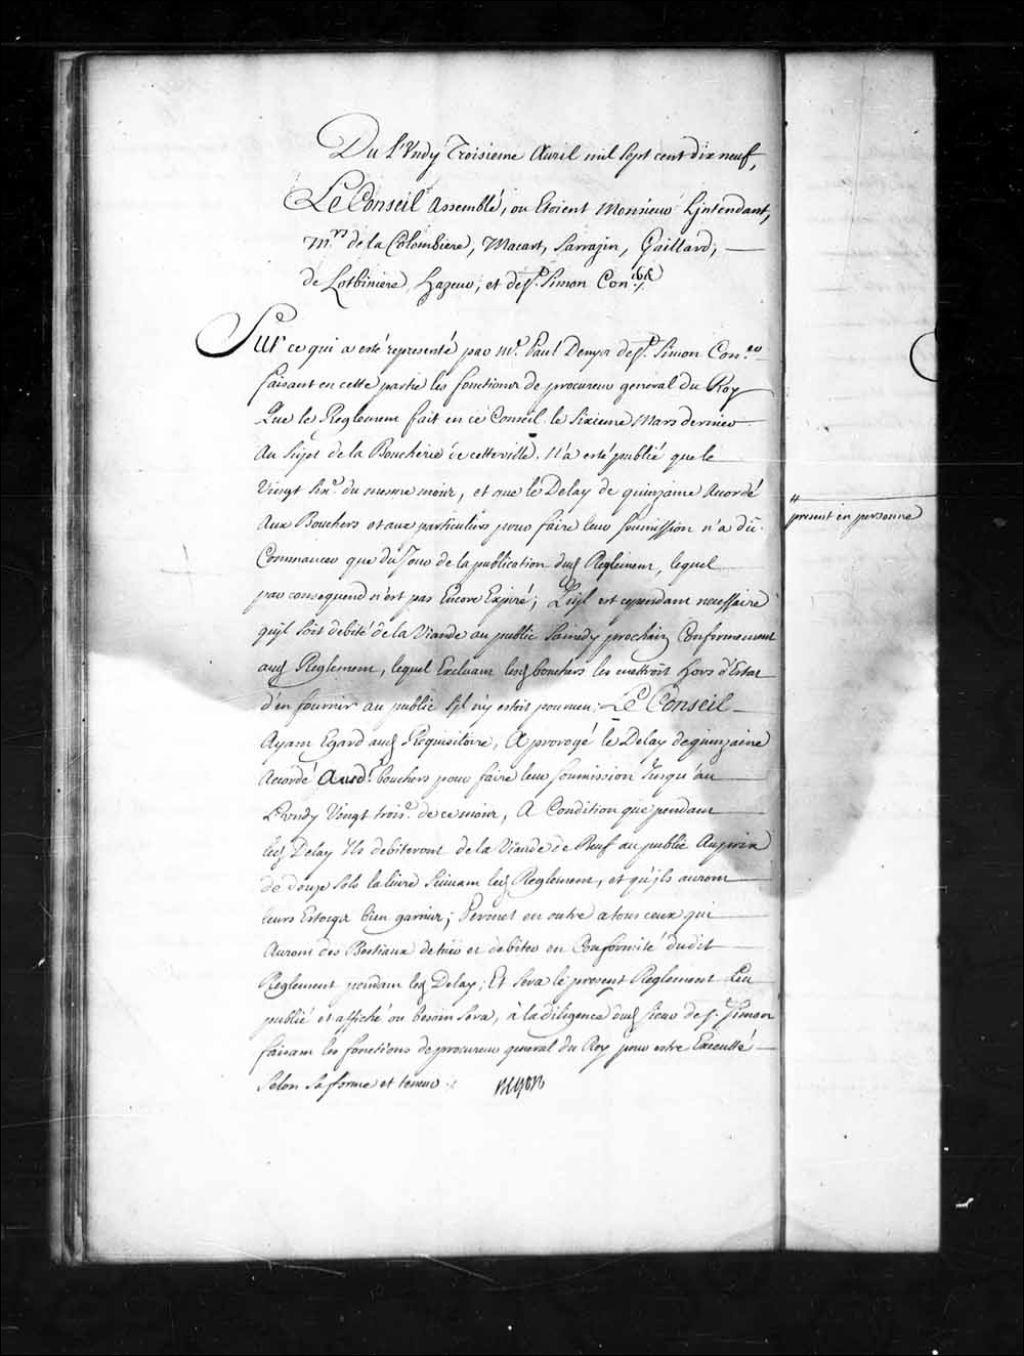 Du L'Undy Troisieme Auril mil sept cent dix neuf,
Le Conseil assemblé, ou Etoient Monsieur L'jntendant,
Mrs de la Colombiere, Macart, Sarrazin, Gaillard,
de Lotbiniere, hazeur, et de St. Simon Conrs
Sur ce qui a esté representé par Me. Paul Denys de St. Simon Coner
faisant en cette partie les fonctions de procureur general du Roy
Que le Reglement fait en ce Conseil le sixieme Mars dernier
au sujet de la Boucherie de cette ville. N'a esté publié que le
Vingt sixe. du mesme mois, et que le Delay de quinzaine acordé
aux Bouchers et aux particuliers pour faire leur soumission n'a dû
Commancer que du Jour de la publication dud Reglement, lequel
par consequend n'est pas Encore Expiré; Qu'jl est cependant necessaire
qu'jl soit debité de la Viande au public samedy prochain Conformement
aud Reglement, lequel Excluant lesd bouchers les mettroit hors d'Estat
d'en fournir au public s'jl n'y estoit pourveu; Le Conseil
Ayant Egard aud Requisitoire, A prorogé le Delay de quinzaine
acordé Ausd. bouchers pour faire leur soumission Jusqu'au
L'undy Vingt troise. de ce mois, A Condition que pendant
led Delay Ils debiteront de la Viande de Beuf au public Au prix
de douze sols la liure suiuant led Reglement, et qu'jls auront
leurs Estocqs bien garnis; Permet en outre a tous ceux qui
auront des Bestiaux de tuer et debiter en Conformité dudit
Reglement pendant led Delay; Et sera le present Reglement Leu
publié et affiché ou besoin sera, à la diligence dud sieur de St. Simon
faisant les fonctions de procureur general du Roy pour estre Executté
selon sa forme et teneur
Begon
present en personne